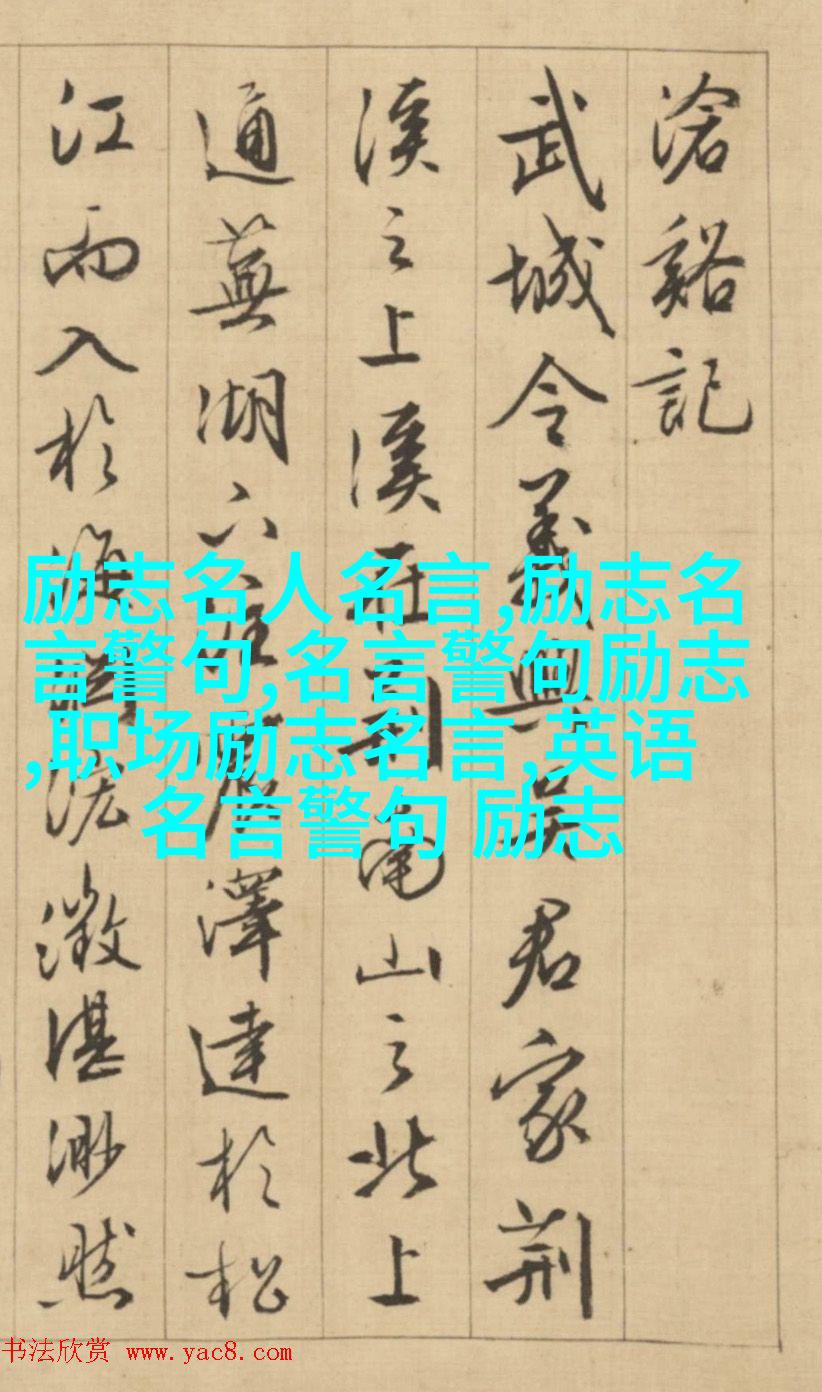 滄谿記
武城令義興吳君家荆
溪之上溪在荆南山之北上
通蕪湖下注震澤達於松
江而入於海澂湛渺然
励志名人名言,励志名
言警句,名言警句励志
,职场励志名言,英语
名言警句 励志
书法欣赏 www.yac8.com